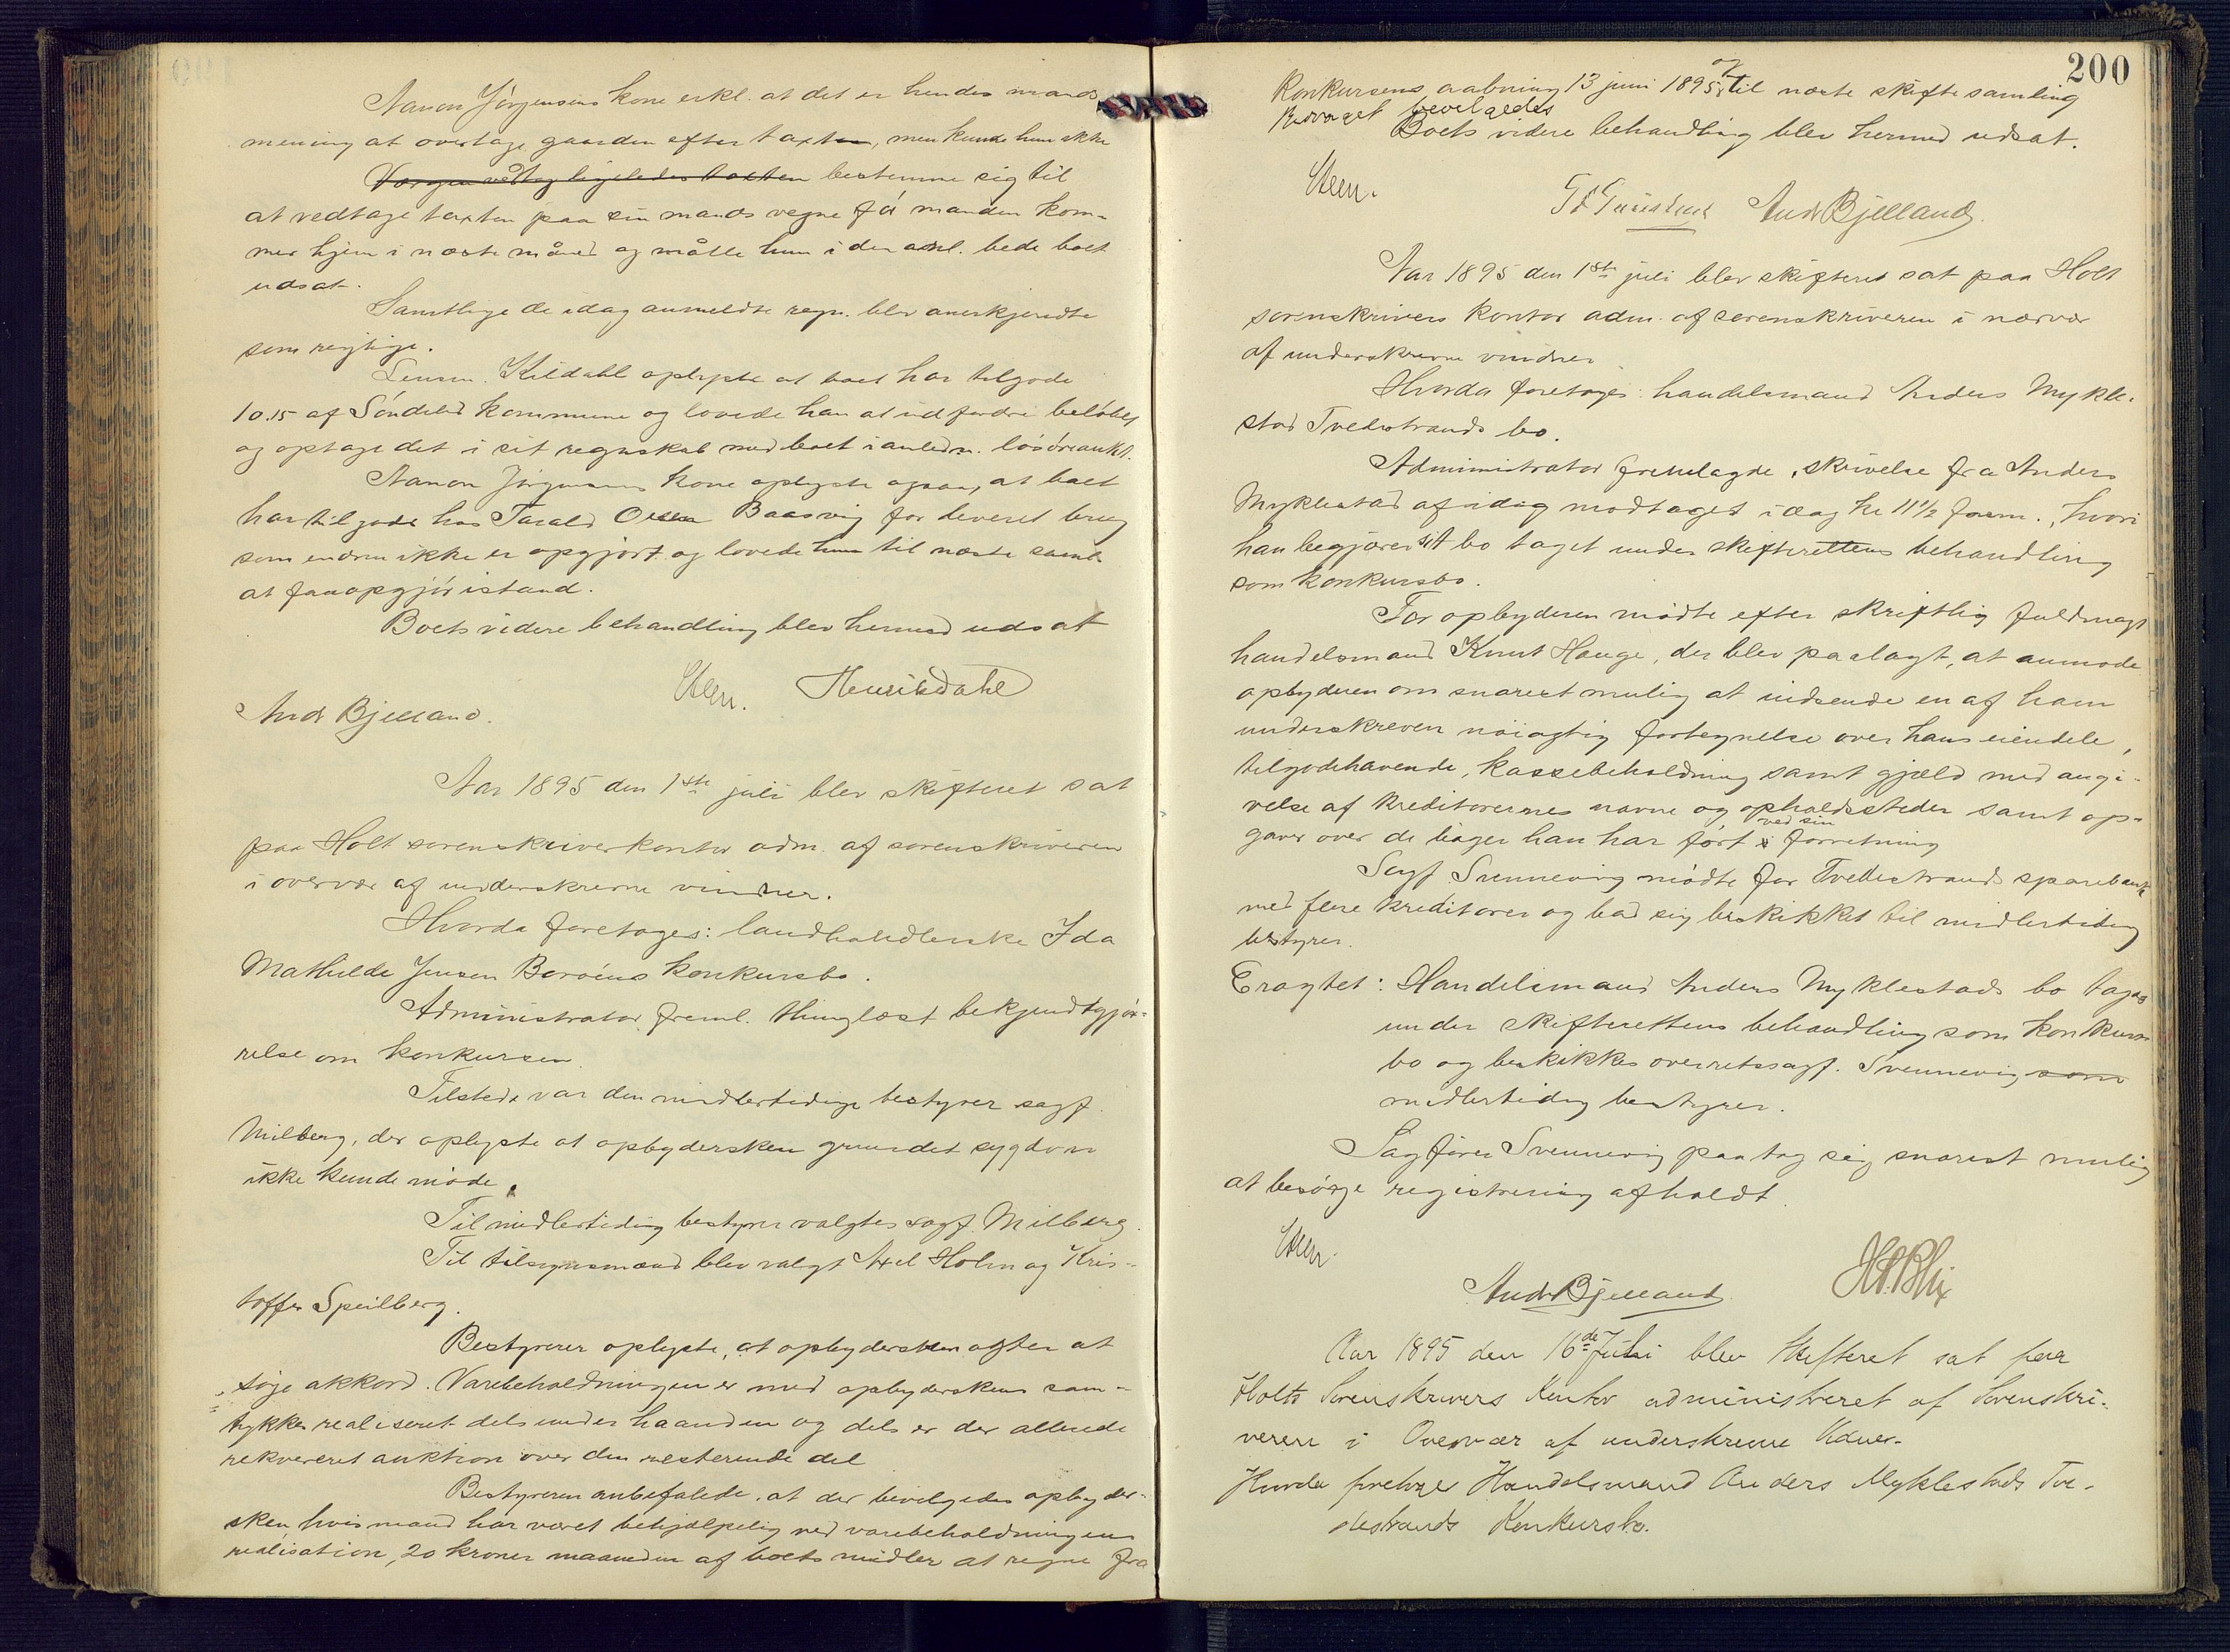 Aanon Jörgensens kone erkl. at det er hendes mands
mening at overtage gaarden efter taxten, men kunde hun ikke
Værgen vedtog ligeledes taxten bestemme sig til
at vedtage taxten paa sin mands vegne før manden kom-
mer hjem i næste måned og måtte hun i den anl. bede boet
udsat.
Samtlige de idag anmeldte regn. blev anerkjendte
som rigtige.
Lensm. Kildahl oplyste at boet har tilgode
10.15 af Söndeled kommune og lovede han at indfordre beløbet
og optage det i sit regnskab med boet i anledn. lösöreaukt.
Aanon Jörgensens kone oplyste ogsaa, at boet
har tilgode hos Tarald Olsen Baasvig for leveret brug
som endnu ikke er opgjort og lovede hun til næste saml.
at faa opgjör istand.
Boets videre behandling blev hermed udsat
Steen. Henrik Dahl
Andr Bjelland.
Aar 1895 den 1ste juli blev skifteret sat
paa Holt sorenskriverkontor adm. af sorenskriveren
i overvær af underskrevne vidner.
Hvorda foretoges: landhandlerske Ida
Mathilde Jensen Borøens konkursbo.
Administrator freml. thinglæst bekjendtgjö-
relse om konkursen.
Tilstede var den midlertidige bestyrer sagf.
Milberg, der oplyste at opbydersken grundet sygdom
ikke kunde möde.
Til midlertidig bestyrer valgtes sagf. Milberg.
Til tilsynsmænd blev valgt Axel Holm og Kris-
toffer Speilberg.
Bestyrerer oplyste, at opbydersken agter at
söge akkord. Varebeholdningen er med opbyderskens sam-
tykke realiseret dels under haanden og dels er der allerede
rekvireret auktion over den resterende del
Bestyreren anbefalede, at der bevilgedes opbyder-
sken hvis mand har været behjælpelig ved varebeholdningens
realisation, 20 kroner maaneden af boets midler at regne fra
200
Konkursens aabning 13 juni 1895 og til næste skiftesamling
Bedraget bevilgedes
Boets videre behandling blev hermed udsat.
Steen.
Andr Bjelland.
Aar 1895 den 1ste juli blev skifteret sat paa Holt
sorenskrivers kontor adm. af sorenskriveren i nærvær
af underskrevne vidner
Hvorda foretoges: handelsmand Anders Mykle-
stad Tvedestrands bo.
Administrator fremlagde skrivelse fra Anders
Myklestad af idag modtaget idag kl 11 1/2 form., hvori
han begjærer sit bo taget under skifterettens behandling
som konkursbo.
For opbyderen mödte efter skriftlig fuldmagt
handelsmand Knut Hauge, der blev paalagt, at anmode
opbyderen om snarest mulig at indsende en af ham
underskreven nöiagtig fortegnelse over hans eiendele,
tilgodehavende, kassebeholdning samt gjæld med angi-
velse af kreditorernes navne og opholdssteder samt op-
gaver over de böger han har fört i ved sin forretning
Sagf. Svennevig mödte for Tvedestrands sparebank
med flere kreditorer og bad sig beskikket til midlertidig
bestyrer.
Eragtet: Handelsmand Anders Myklestads bo tages
under skifterettens behandling som konkurs
bo og beskikkes overretssagf. Svennevig som
midlertidig bestyrer.
Sagförer Svennevig paatog sig snarest mulig
at besörge registrering afholdt.
Steen.
Andr Bjelland
Aar 1895 den 16de Juli blev Skifteret sat paa
Holts Sorenskrivers Kontor administreret af Sorenskri-
veren i Overvær af underskrevne Vidner.
Hvorda foretoges Handelsmand Anders Myklestads Tve-
destrands Konkursbo.